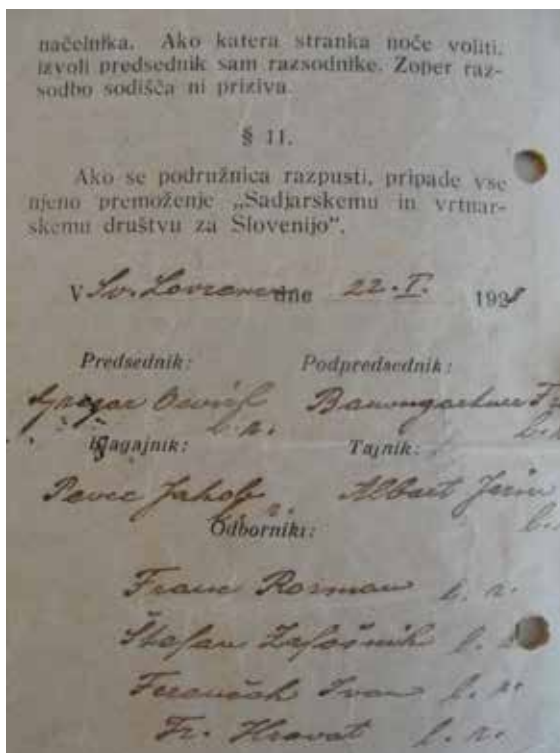 načelnika. Ako katera stranka noče voliti,
izvoli predsednik sam razsodnike. Zoper raz-
sodbo sodišča ni priziva.
§ 11.
Ako se podružnica razpusti, pripade vse
njeno premoženje „Sadjarskemu in vrtnar-
skemu društvu za Slovenijo“.
V Sv. Lovrencu dne 22. I. 1928
Predsednik: Podpredsednik:
Gregor Baumgartner Fr
l. r.
Blagajnik: Tajnik:
Pavec Jakob l. r. Albert
Odborniki:
Franc Rozman l. r.
Štefan l. r.
Ivan l. r.
Fr. Hrovat l. r.